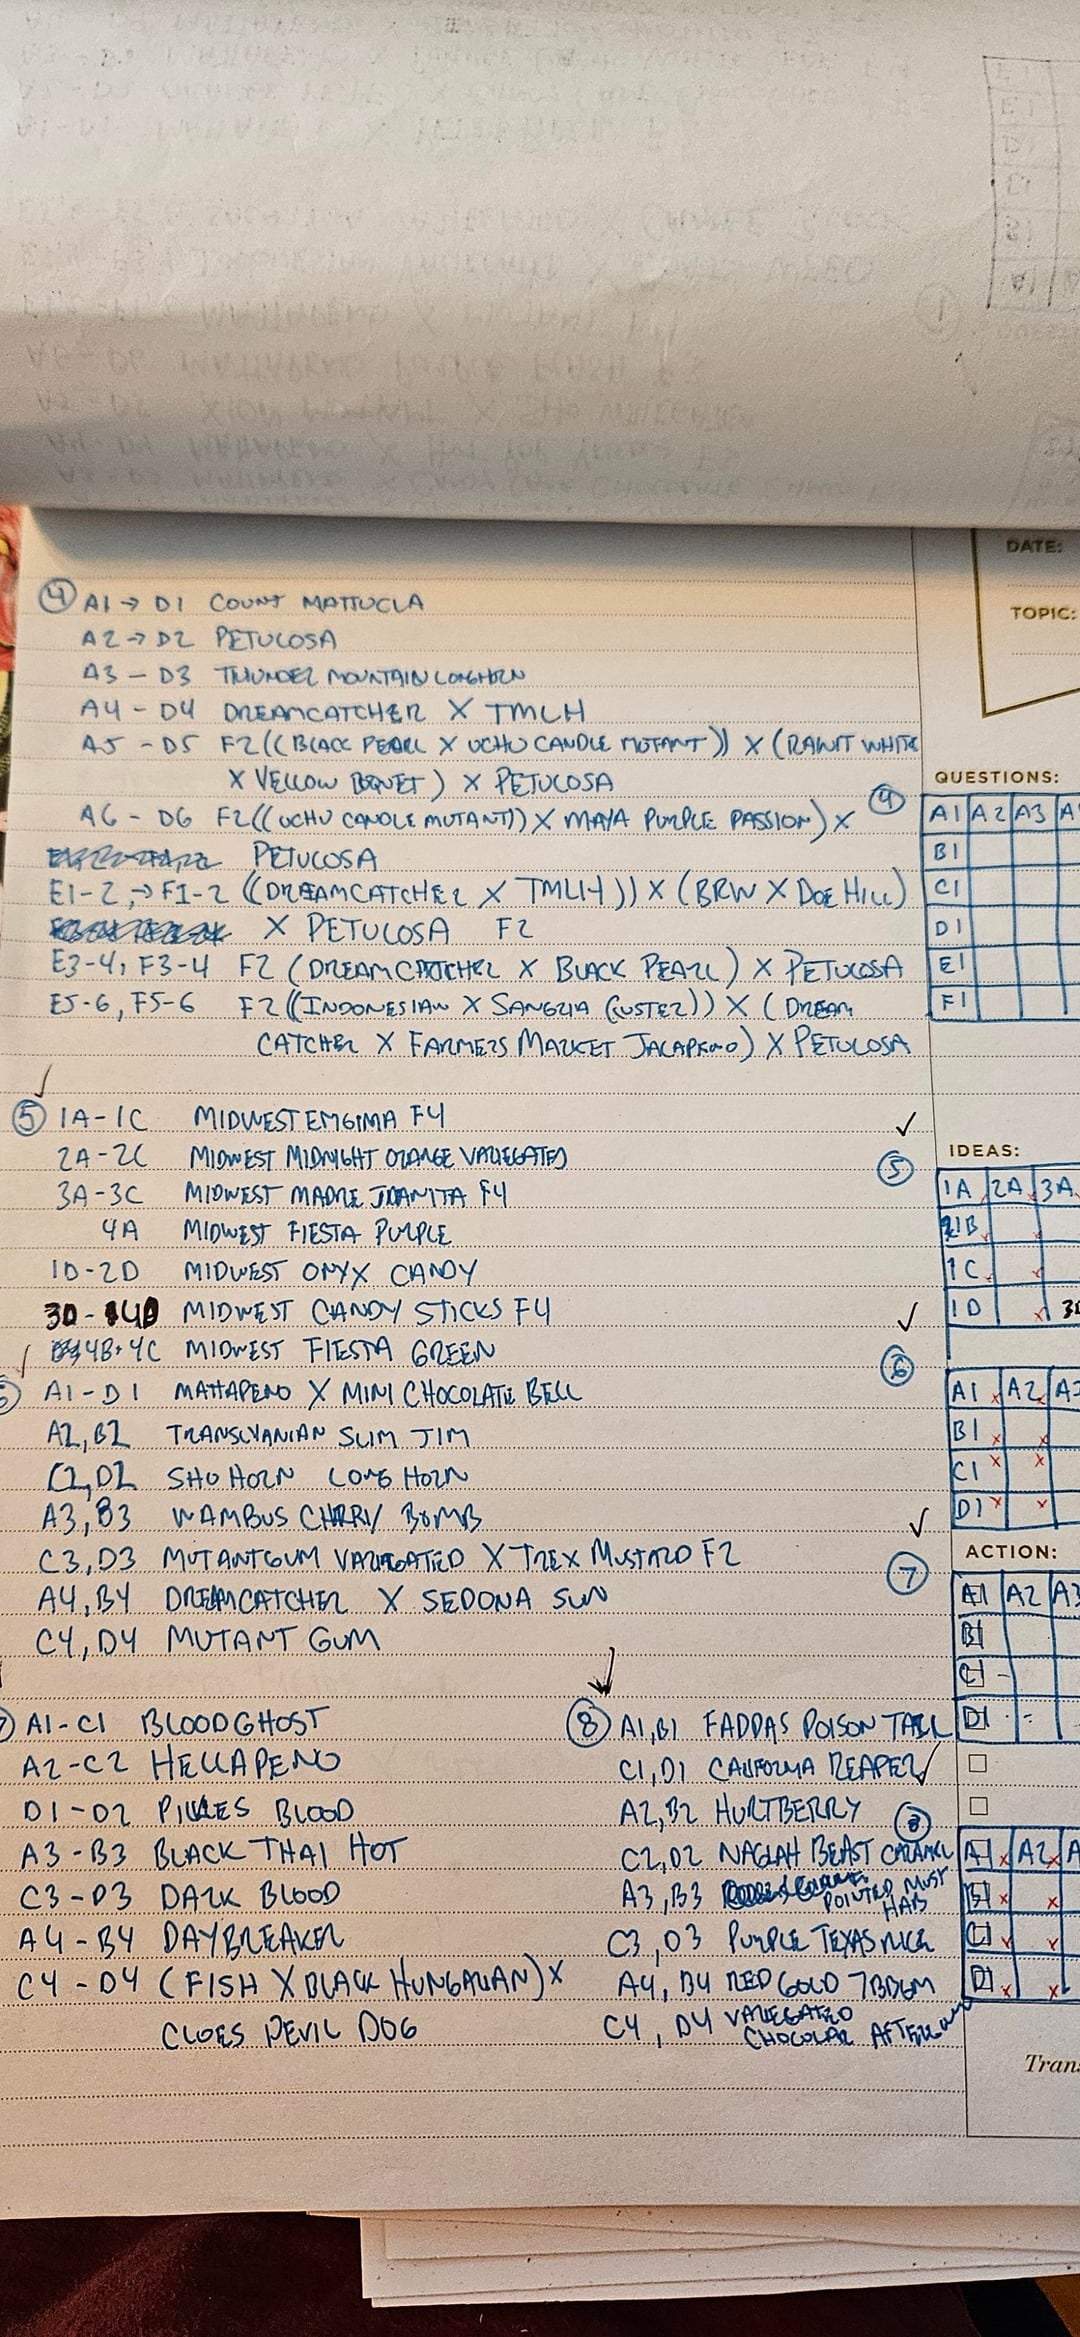 ④ A1 → D1 COUNT MATTUCLA
A2 → D2 PETULOSA
A3 - D3 THUNDER MOUNTAIN LONGHORN
A4 - D4 DREAMCATCHER X TMLH
A5 - D5 F2((BLACK PEARL X UCHU CANDLE MUTANT)) X (RAWIT WHITE
X YELLOW BOQUET) X PETULOSA
A6 - D6 F2((UCHU CANDLE MUTANT)) X MAYA PURPLE PASSION) X
PETULOSA
E1-2, → F1-2 ((DREAMCATCHER X TMLH)) X (BRW X DOE HILL)
X PETULOSA F2
E3-4, F3-4 F2 (DREAMCATCHER X BLACK PEARL) X PETULOSA
E5-6, F5-6 F2((INDONESIAN X SANGRIA CUSTER)) X (DREAM
CATCHER X FARMERS MARKET JALAPENO) X PETULOSA
⑤ 1A-1C MIDWEST EMGIMA F4
2A-2C MIDWEST MIDNIGHT ORANGE VARIEGATED
3A-3C MIDWEST MADRE JUANITA F4
4A MIDWEST FIESTA PURPLE
1D-2D MIDWEST ONYX CANDY
3D-4D MIDWEST CANDY STICKS F4
4B+4C MIDWEST FIESTA GREEN
A1-D1 MATTAPENO X MINI CHOCOLATE BELL
A2, B2 TRANSLVANIAN SLIM JIM
C2, D2 SHO HORN LONG HORN
A3, B3 WAMBUS CHERRY BOMB
C3, D3 MUTANTGUM VARIEGATED X TREX MUSTARD F2
A4, B4 DREAMCATCHER X SEDONA SUN
C4, D4 MUTANT GUM
A1-C1 BLOODGHOST
A2-C2 HELLAPENO
D1-D2 PIKLES BLOOD
A3-B3 BLACK THAI HOT
C3-D3 DARK BLOOD
A4-B4 DAYBREAKER
C4-D4 (FISH X BLACK HUNGARIAN) X
CLOES DEVIL DOG
⑧ A1, B1 FADDAS POISON TAIL
C1, D1 CALIFORNIA REAPER
A2, B2 HURTBERRY
C2, D2 NAGLAH BEAST CARAMEL
A3, B3 POINTED MUST
HABS
C3, D3 PURPLE TEXAS
A4, B4 RED GOLD 7BDGM
C4, D4 VARIEGATED
CHOCOLAR
DATE:
TOPIC:
QUESTIONS:
④
A1 A2 A3
B1
C1
D1
E1
F1
IDEAS:
⑤
1A 2A 3A
1B
1C
1D 3D
⑥
A1 A2
B1
C1
D1
ACTION:
⑦
A1 A2 A3
B1
C1
D1
⑧
A1 A2 A
B1
C1
D1